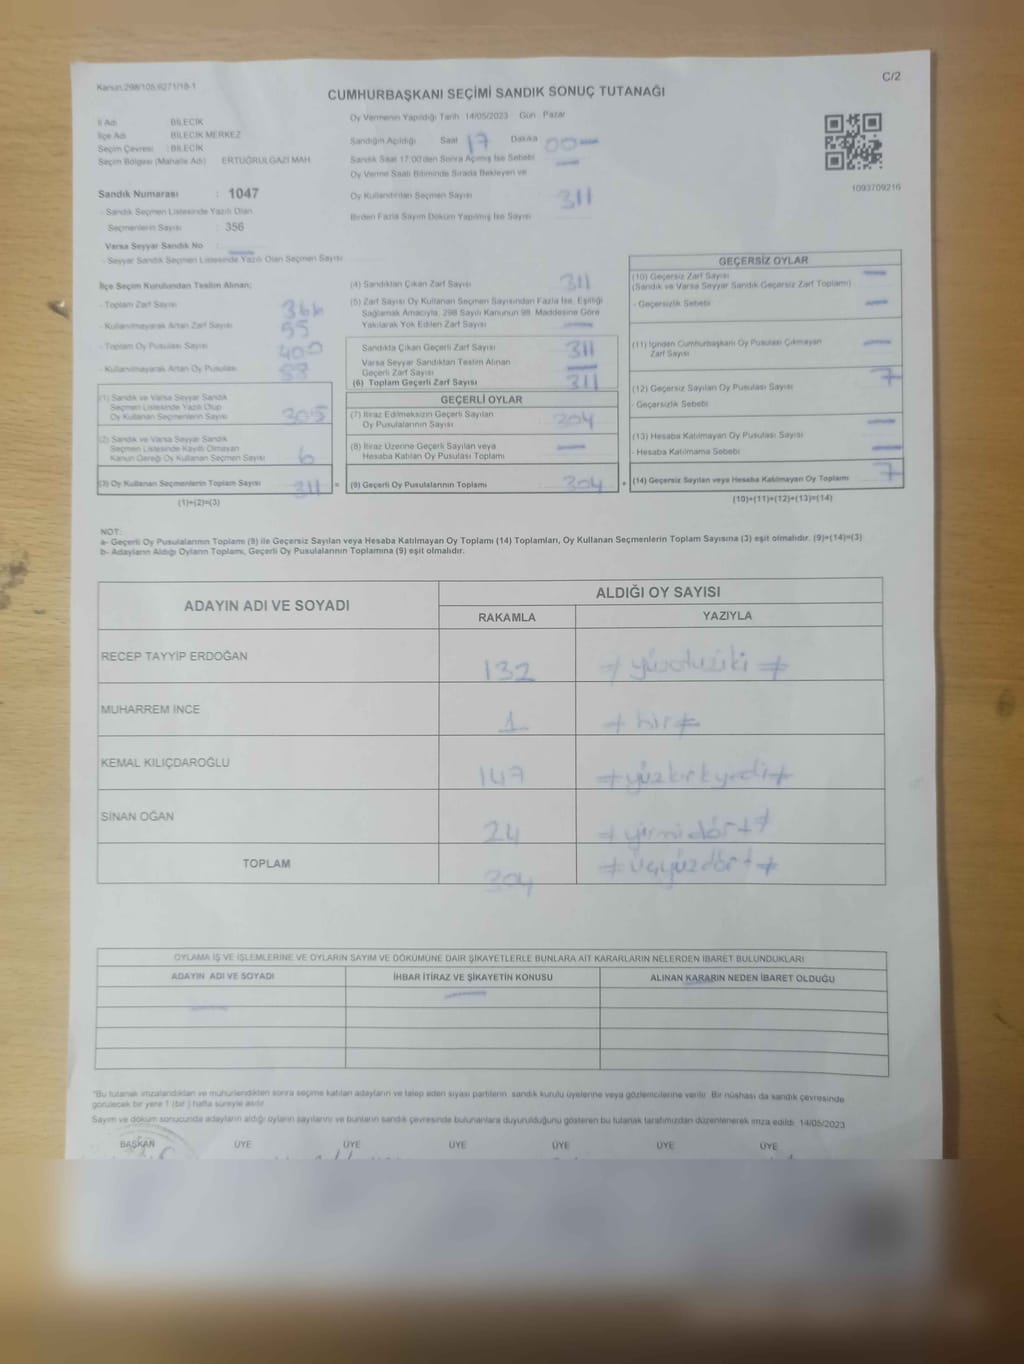 Kanun:298/105,6271/18-1
C/2
CUMHURBAŞKANI SEÇİMİ SANDIK SONUÇ TUTANAĞI
İl Adı BİLECİK
İlçe Adı BİLECİK MERKEZ
Seçim Çevresi : BİLECİK
Seçim Bölgesi (Mahalle Adı) ERTUĞRULGAZİ MAH
Oy Vermenin Yapıldığı Tarih 14/05/2023 Gün Pazar
Sandığın Açıldığı Saat 17 Dakika 00
Sandık Saat 17:00'den Sonra Açılmış İse Sebebi
Oy Verme Saati Bitiminde Sırada Bekleyen ve
Oy Kullandırılan Seçmen Sayısı 311
Birden Fazla Sayım Döküm Yapılmış İse Sayısı
1093709216
Sandık Numarası : 1047
- Sandık Seçmen Listesinde Yazılı Olan
Seçmenlerin Sayısı : 356
Varsa Seyyar Sandık No
- Seyyar Sandık Seçmen Listesinde Yazılı Olan Seçmen Sayısı
İlçe Seçim Kurulundan Teslim Alınan;
- Toplam Zarf Sayısı 366
- Kullanılmayarak Artan Zarf Sayısı 55
- Toplam Oy Pusulası Sayısı 400
- Kullanılmayarak Artan Oy Pusulası
(1) Sandık ve Varsa Seyyar Sandık
Seçmen Listesinde Yazılı Olup
Oy Kullanan Seçmenlerin Sayısı 305
(2) Sandık ve Varsa Seyyar Sandık
Seçmen Listesinde Kayıtlı Olmayan
Kanun Gereği Oy Kullanan Seçmen Sayısı 6
(3) Oy Kullanan Seçmenlerin Toplam Sayısı 311 =
(1)+(2)=(3)
(4) Sandıktan Çıkan Zarf Sayısı 311
(5) Zarf Sayısı Oy Kullanan Seçmen Sayısından Fazla İse, Eşitliği
Sağlamak Amacıyla, 298 Sayılı Kanunun 98. Maddesine Göre
Yakılarak Yok Edilen Zarf Sayısı
Sandıkta Çıkan Geçerli Zarf Sayısı 311
Varsa Seyyar Sandıktan Teslim Alınan
Geçerli Zarf Sayısı
(6) Toplam Geçerli Zarf Sayısı 311
GEÇERLİ OYLAR
(7) İtiraz Edilmeksizin Geçerli Sayılan
Oy Pusulalarının Sayısı 304
(8) İtiraz Üzerine Geçerli Sayılan veya
Hesaba Katılan Oy Pusulası Toplamı
(9) Geçerli Oy Pusulalarının Toplamı 304 +
GEÇERSİZ OYLAR
(10) Geçersiz Zarf Sayısı
(Sandık ve Varsa Seyyar Sandık Geçersiz Zarf Toplamı)
- Geçersizlik Sebebi
(11) İçinden Cumhurbaşkanı Oy Pusulası Çıkmayan
Zarf Sayısı
(12) Geçersiz Sayılan Oy Pusulası Sayısı 7
- Geçersizlik Sebebi
(13) Hesaba Katılmayan Oy Pusulası Sayısı
- Hesaba Katılmama Sebebi
(14) Geçersiz Sayılan veya Hesaba Katılmayan Oy Toplamı 7
(10)+(11)+(12)+(13)=(14)
NOT:
a- Geçerli Oy Pusulalarının Toplamı (9) ile Geçersiz Sayılan veya Hesaba Katılmayan Oy Toplamı (14) Toplamları, Oy Kullanan Seçmenlerin Toplam Sayısına (3) eşit olmalıdır. (9)+(14)=(3)
b- Adayların Aldığı Oyların Toplamı, Geçerli Oy Pusulalarının Toplamına (9) eşit olmalıdır.
ADAYIN ADI VE SOYADI
ALDIĞI OY SAYISI
RAKAMLA YAZIYLA
RECEP TAYYİP ERDOĞAN 132 # yüzotuziki #
MUHARREM İNCE 1 # bir #
KEMAL KILIÇDAROĞLU 147 # yüzkırkyedi #
SİNAN OĞAN 24 # yirmidört #
TOPLAM 304 # üçyüzdört #
OYLAMA İŞ VE İŞLEMLERİNE VE OYLARIN SAYIM VE DÖKÜMÜNE DAİR ŞİKAYETLERLE BUNLARA AİT KARARLARIN NELERDEN İBARET BULUNDUKLARI
ADAYIN ADI VE SOYADI İHBAR İTİRAZ VE ŞİKAYETİN KONUSU ALINAN KARARIN NEDEN İBARET OLDUĞU
"Bu tutanak imzalandıktan ve mühürlendikten sonra seçime katılan adayların ve talep eden siyasi partilerin sandık kurulu üyelerine veya gözlemcilerine verilir. Bir nüshası da sandık çevresinde
görülecek bir yere 1 (bir) hafta süreyle asılır.
Sayım ve döküm sonucunda adayların aldığı oyların sayılarını ve bunların sandık çevresinde bulunanlara duyurulduğunu gösteren bu tutanak tarafımızdan düzenlenerek imza edildi. 14/05/2023
BAŞKAN ÜYE ÜYE ÜYE ÜYE ÜYE ÜYE